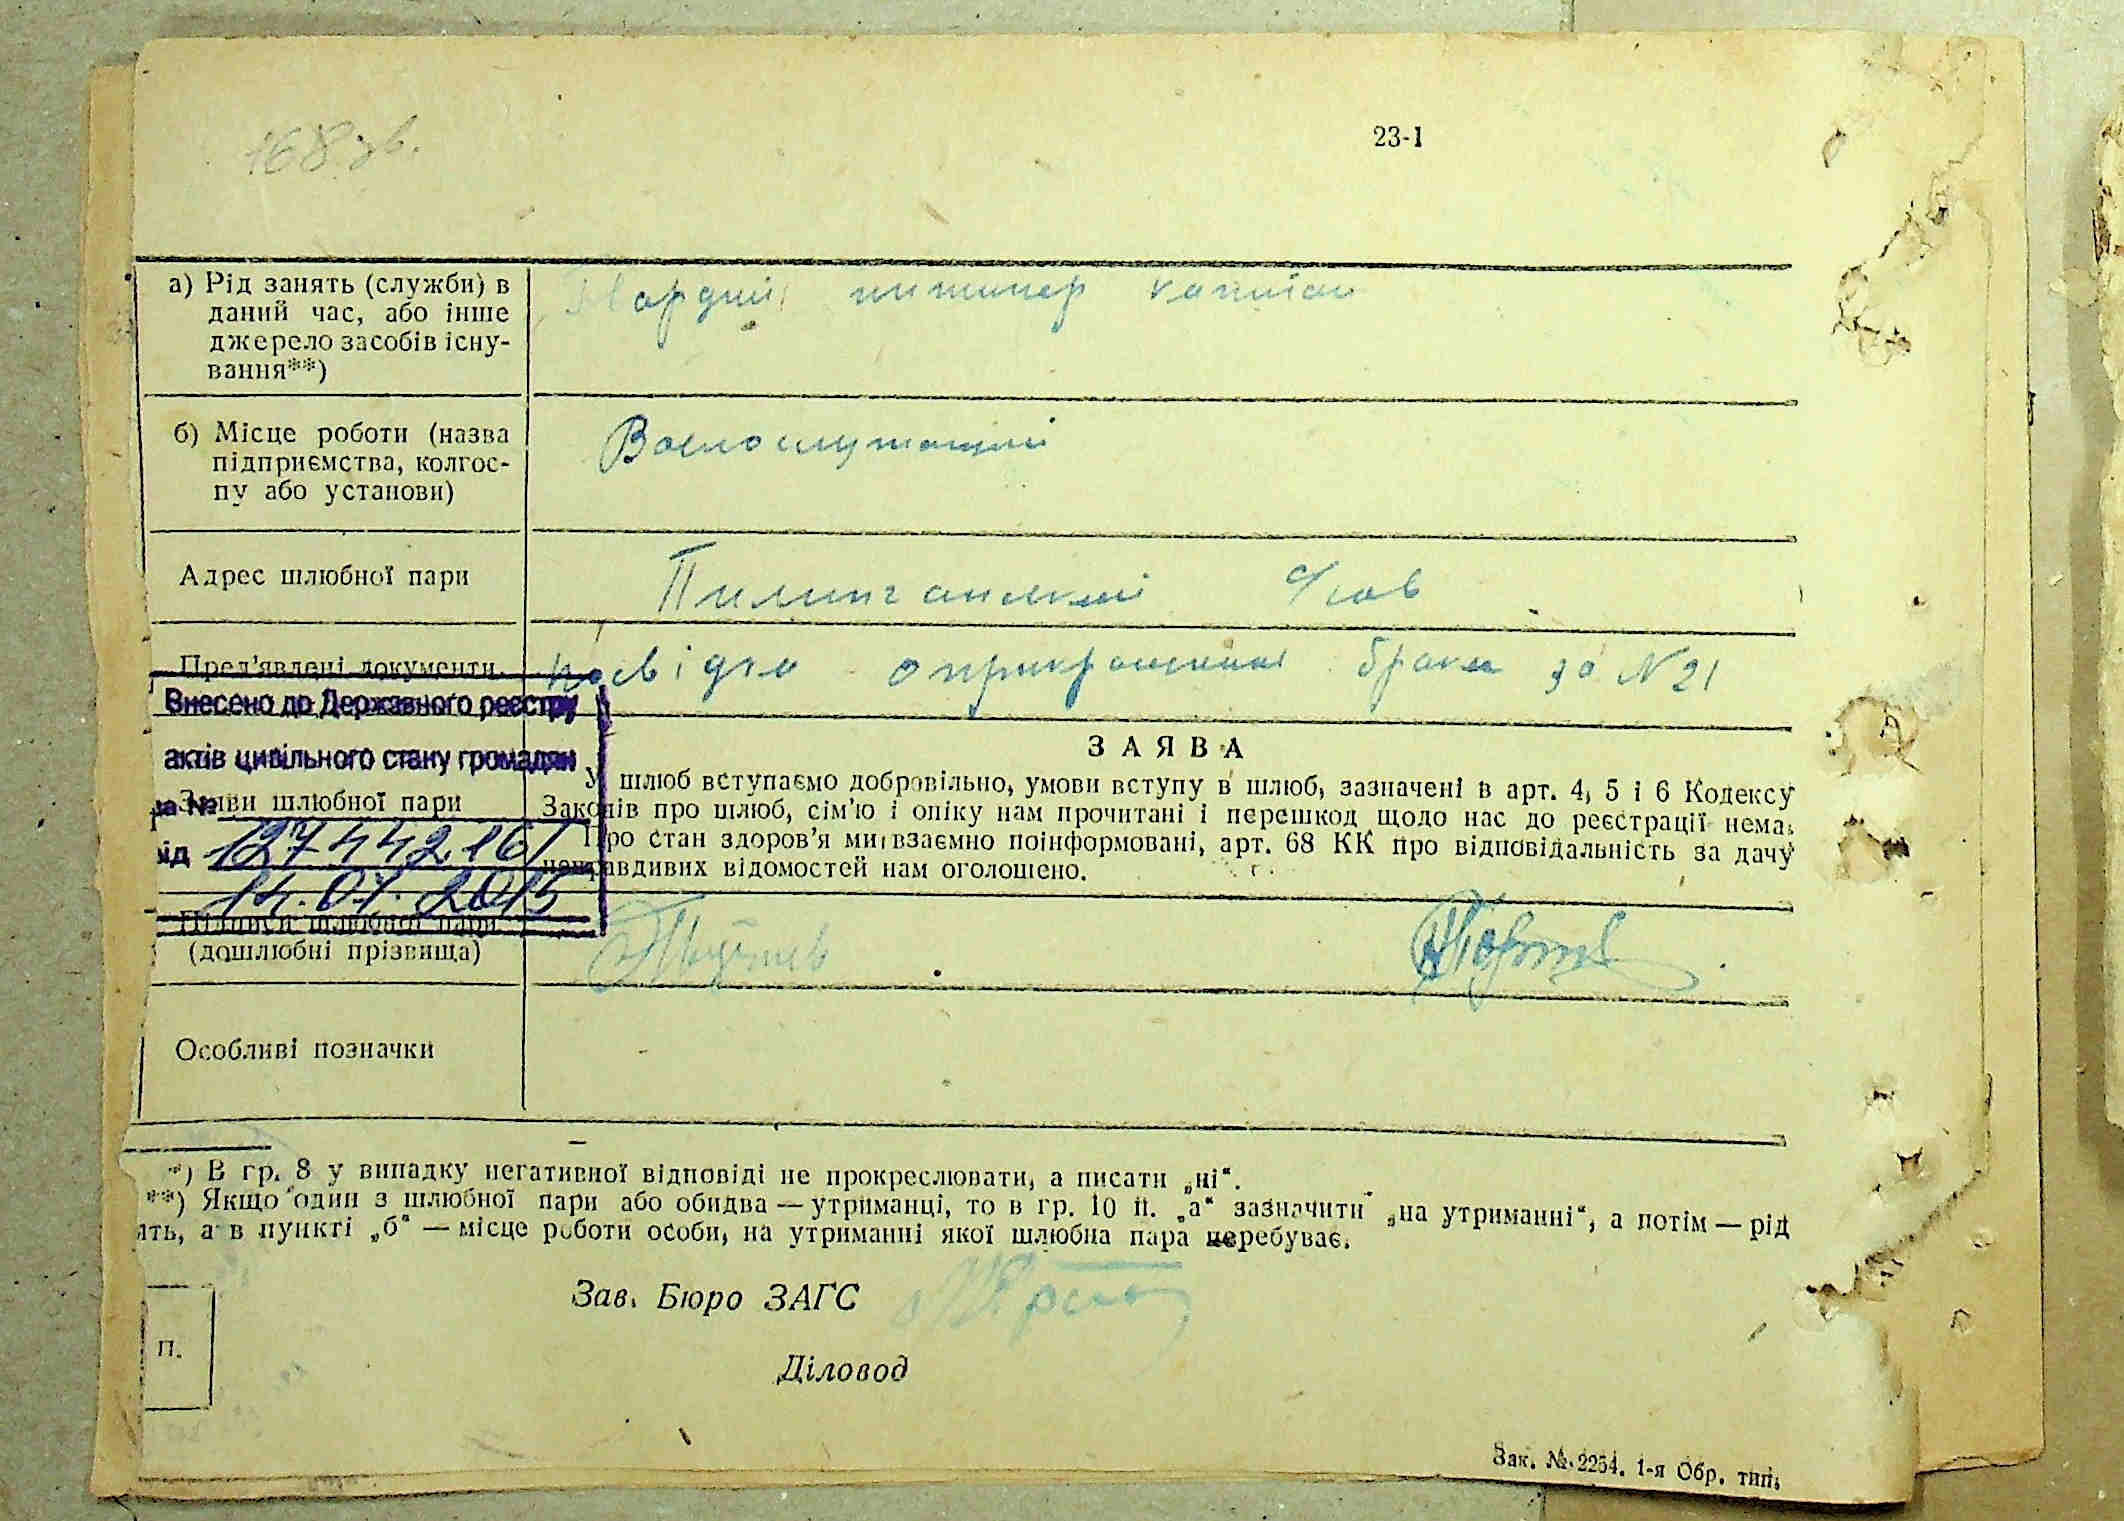 168 зв.
23-1
а) Рід занять (служби) в
даний час, або інше
джерело засобів існу-
вання**)
инженер капитан
б) Місце роботи (назва
підприємства, колгос-
пу або установи)
Военослужащий
Адрес шлюбної пари
с/сов
Пред'явлені документи
посвідка о прикращении брака за N 21
Внесено до Державного реєстру
актів цивільного стану громадян
за №
127442161
від
14.07.2015
ЗАЯВА
Заяви шлюбної пари
У шлюб вступаємо добровільно, умови вступу в шлюб, зазначені в арт. 4, 5 і 6 Кодексу
Законів про шлюб, сім'ю і опіку нам прочитані і перешкод щодо нас до реєстрації нема.
Про стан здоров'я ми взаємно поінформовані, арт. 68 КК про відповідальність за дачу
неправдивих відомостей нам оголошено.
Підписи шлюбної пари
(дошлюбні прізвища)
Особливі позначки
*) В гр. 8 у випадку негативної відповіді не прокреслювати, а писати „ні“.
**) Якщо один з шлюбної пари або обидва — утриманці, то в гр. 10 п. „а“ зазначити „на утриманні“, а потім — рід
ять, а в пункті „б“ — місце роботи особи, на утриманні якої шлюбна пара перебуває.
Зав. Бюро ЗАГС
П.
Діловод
Зак. № 2254. 1-я Обр. тип.